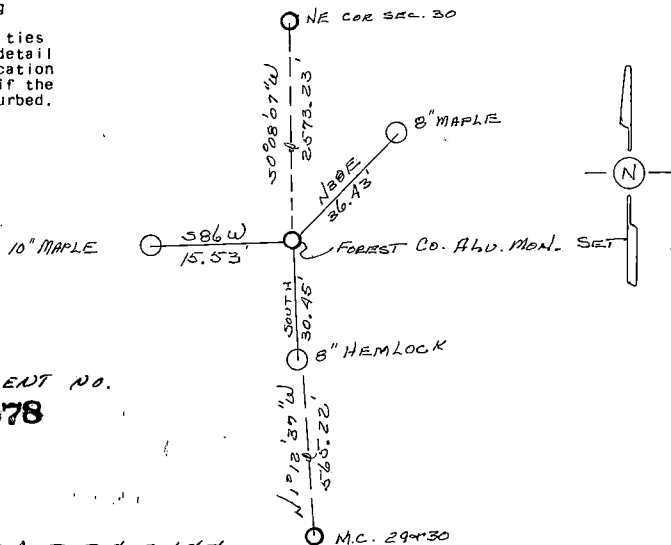 ties
detail
cation
if the
urbed.
NE COR SEC. 30
S0°08'07"W
2573.23'
8" MAPLE
N38E
36.43'
N
10" MAPLE
S86W
15.53'
FOREST CO. ALU. MON. SET
SOUTH
30.45'
8" HEMLOCK
ENT NO.
78
N1°12'37"W
565.22'
M.C. 29&30